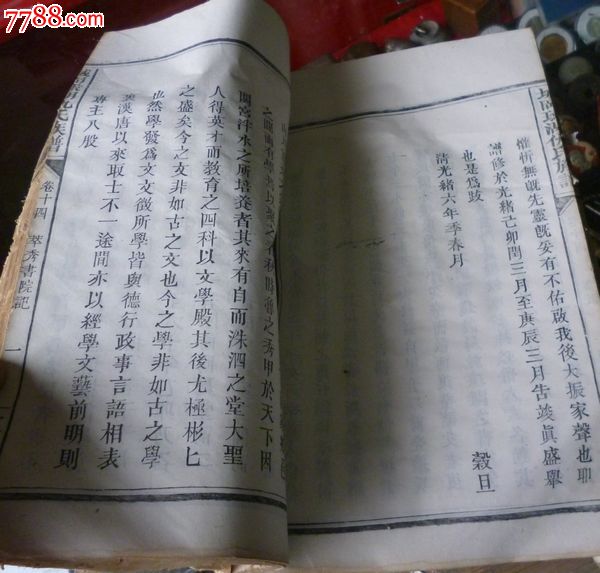 7788.com
懽忻無旣先靈旣妥有不佑啟我後大振家聲也耶
譜修於光緒己卯閏三月至庚辰三月告竣眞盛舉
也是爲跋
清光緒六年季春月 穀旦
之秀甲於天下因
閟宮泮水之所培養者其來有自而洙泗之堂大聖
人得英才而教育之四科以文學殿其後尤極彬匕
之盛矣今之文非如古之文也今之學非如古之學
也然學發爲文文徵所學皆與德行政事言語相表
裏漢唐以來取士不一途間亦以經學文藝前明則
專主八股
氏族譜 卷十四 萃秀書院記 一